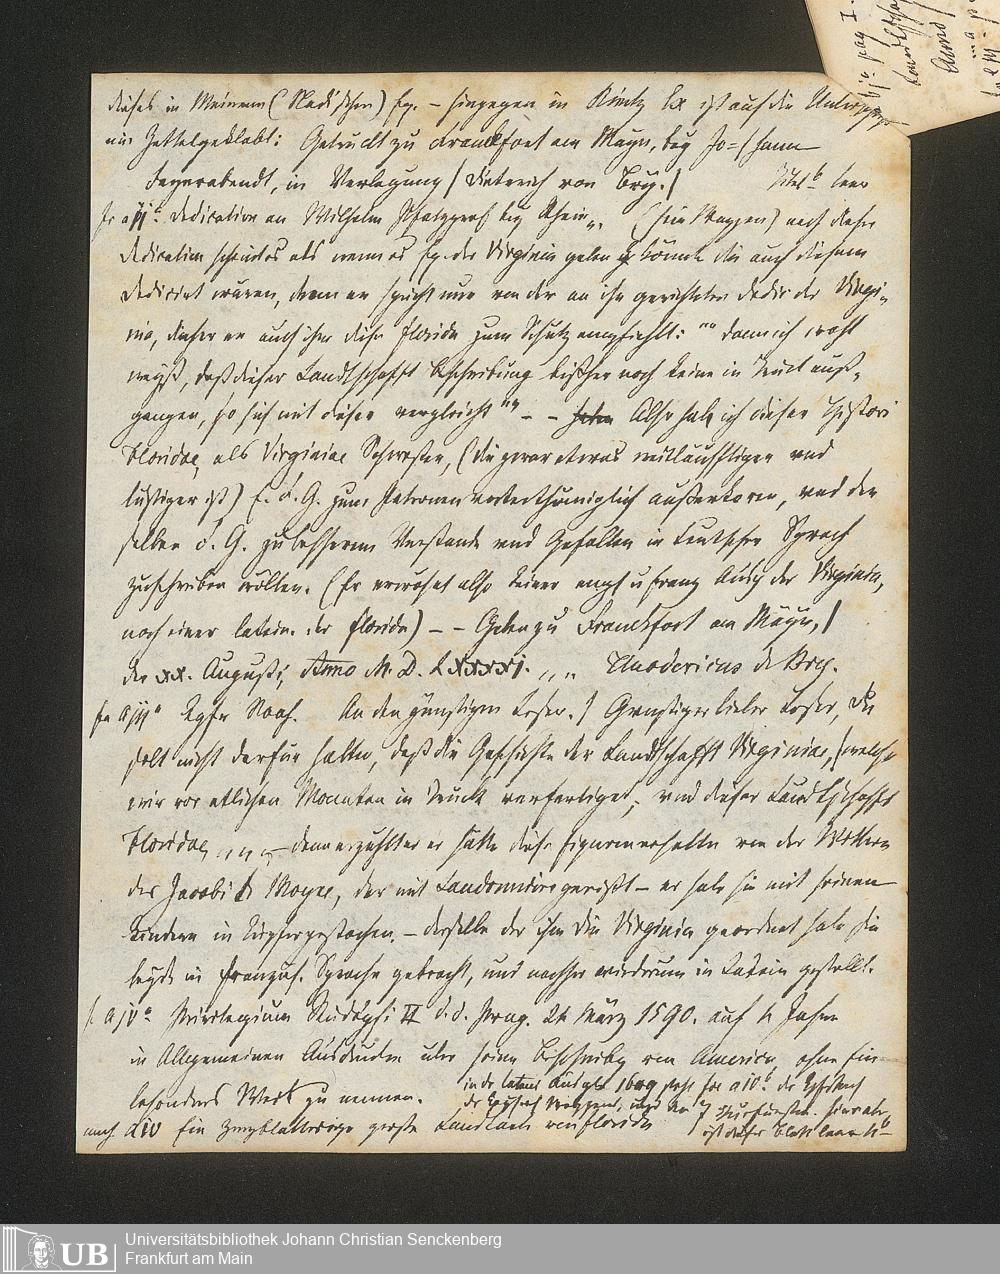 dieses in Meinem (Stadischen) Ex. – hingegen in Ex ist auf die
ein Zettel geklebt: Getruckt zu Franckfort am Mayn, bey Jo=/hann
Feyerabendt, in Verlegung / Dieterich von Bry./ Titel b leer
fo a ij a. Dedication an Wilhelm Pfalzgraf bey Rhein„ (sein Wappen) nach dieser
Dedication scheint es als wenn es Ex. der Virginia geben könnte die auch diesem
Dedicirt wären, denn er spricht nur von der an ihn gerichteten Dedic der Virgi-
nia, daher er auch ihm diese Florida zum Schutz empfiehlt: "" dann ich wohl
weyß, daß dieser Landtschafft Beschreibung bißher noch keine in Truck auß-
gangen, so sich mit dieser vergleicht "" – – Also hab ich dieser Histori
Floridae, als Virginiae Schwester, (die zwar etwas weitläufftiger und
lustiger ist) E. F. G. zum Patronen unterthäniglich außerkoren, und den
selben F. G. zu besserem Verstande und Gefallen in Teutscher Sprach
zuschreiben wöllen. (Er erwähnt also keiner engl u franz Ausg der Virginia,
noch einer latein. der Florida) – – Geben zu Franckfort am Mayn, /
den xx. Augusti, Anno M. D. LXXXXj. „„ Theodericus de Bry.
fo a iij a An den günstigen Leser. / Grunstiger lieber Leser, Du
solt nicht darfür halten, daß die Geschichte der Landtschafft Virginiae, (welche
wir vor etlichen Monaten in Truck verfertiget, und dieser Landtschafft
Floridae „„ – dann erzählt er er hätte diese Figuren erhalten von der Wittwe
des Jacobi Moyne, der mit Laudonniere gereißt – er habe sie mit seinen
Kindern in Kupfer gestochen. – derselbe der ihm die Virginia geordnet habe sie
beyde in französ. Sprache gebracht, und nachher wiederum in Latein gestellt.
f. a iv a Privilegium Rudolphi II d. d. Prag. 24 März 1590. auf 4 Jahre
in Allgemeinen Ausdrücken über seine Beschreibg von America ohne Ein
besonders Werk zu nennen. in der latein Ausgabe 1609 steht fo a iv b der
der Wappen, 7 Churfürsten. hier aber
nach a iv Ein zweyblattrige große Landcarte von Florida ist dieses Blatt leer b –
Universitätsbibliothek Johann Christian Senckenberg
UB Frankfurt am Main